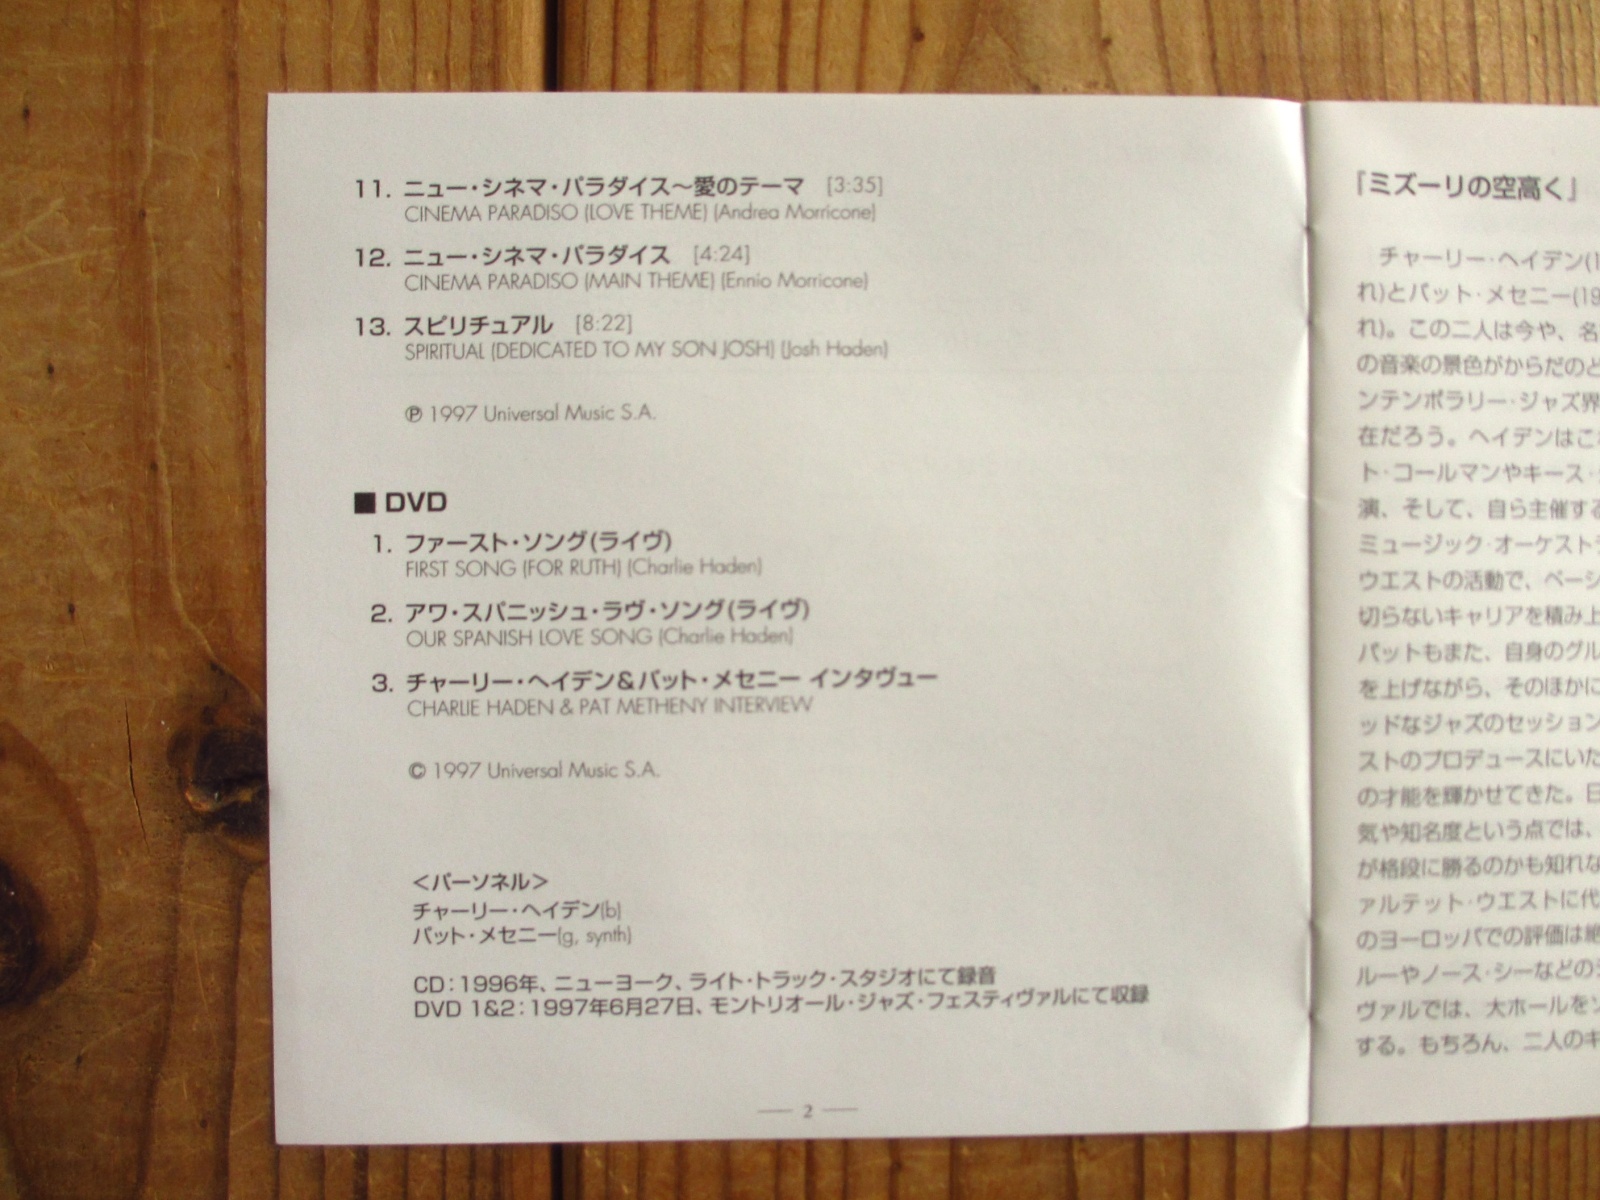 11. ニュー・シネマ・パラダイス〜愛のテーマ [3:35]
CINEMA PARADISO (LOVE THEME) (Andrea Morricone)
12. ニュー・シネマ・パラダイス [4:24]
CINEMA PARADISO (MAIN THEME) (Ennio Morricone)
13. スピリチュアル [8:22]
SPIRITUAL (DEDICATED TO MY SON JOSH) (Josh Haden)
℗ 1997 Universal Music S.A.
■ DVD
1. ファースト・ソング(ライヴ)
FIRST SONG (FOR RUTH) (Charlie Haden)
2. アワ・スパニッシュ・ラヴ・ソング(ライヴ)
OUR SPANISH LOVE SONG (Charlie Haden)
3. チャーリー・ヘイデン&パット・メセニー インタヴュー
CHARLIE HADEN & PAT METHENY INTERVIEW
© 1997 Universal Music S.A.
<パーソネル>
チャーリー・ヘイデン(b)
パット・メセニー(g, synth)
CD:1996年、ニューヨーク、ライト・トラック・スタジオにて録音
DVD 1&2:1997年6月27日、モントリオール・ジャズ・フェスティヴァルにて収録
— 2 —
『ミズーリの空高く』
チャーリー・ヘイデン(1
れ)とパット・メセニー(19
れ)。この二人は今や、名
の音楽の景色がからだのど
ンテンポラリー・ジャズ界
在だろう。ヘイデンはこ
ト・コールマンやキース・
演、そして、自ら主催する
ミュージック・オーケスト
ウエストの活動で、ベーシ
切らないキャリアを積み上
パットもまた、自身のグル
を上げながら、そのほかに
ッドなジャズのセッション
ストのプロデュースにいた
の才能を輝かせてきた。日
気や知名度という点では、
が格段に勝るのかも知れな
ァルテット・ウエストに代
のヨーロッパでの評価は絶
ルーやノース・シーなどの
ヴァルでは、大ホールをソ
する。もちろん、二人のキ